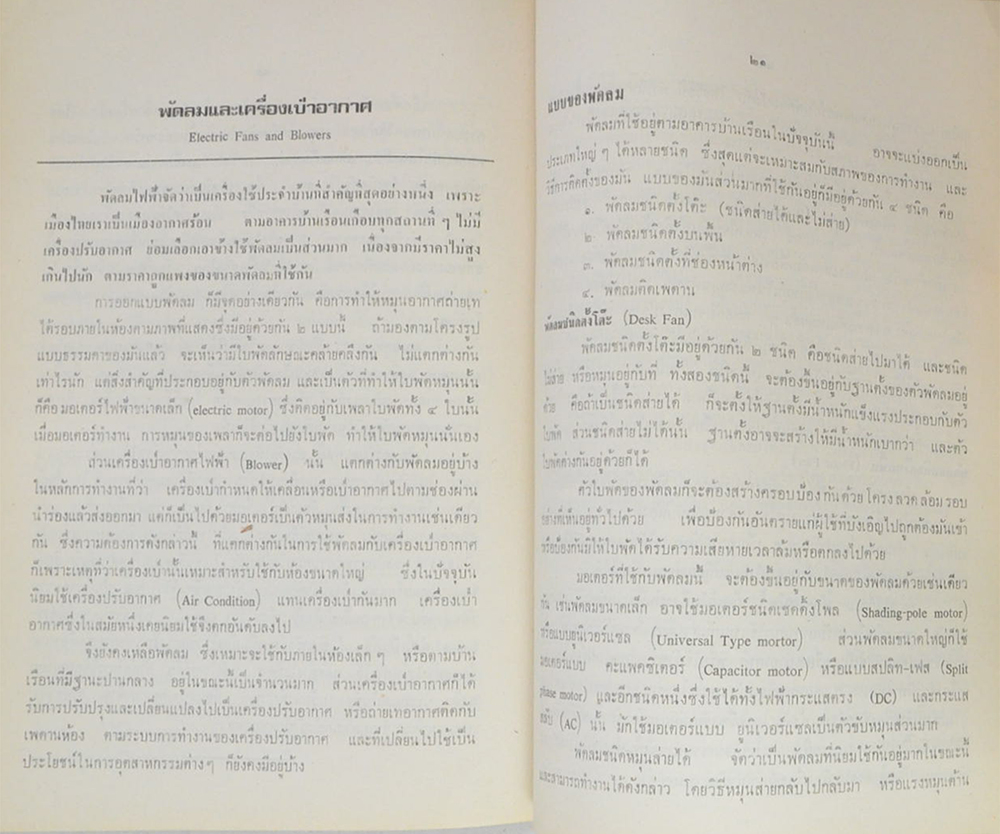 พัดลมและเครื่องเป่าอากาศ
Electric Fans and Blowers
พัดลมไฟฟ้าจัดว่าเป็นเครื่องใช้ประจำบ้านที่สำคัญที่สุดอย่างหนึ่ง เพราะ
เมืองไทยเราเป็นเมืองอากาศร้อน ตามอาคารบ้านเรือนเกือบทุกสถานที่ ๆ ไม่มี
เครื่องปรับอากาศ ย่อมเลือกเอาข้างใช้พัดลมเป็นส่วนมาก เนื่องจากมีราคาไม่สูง
เกินไปนัก ตามราคาถูกแพงของขนาดพัดลมที่ใช้กัน
การออกแบบพัดลม ก็มีจุดอย่างเดียวกัน คือการทำให้หมุนอากาศถ่ายเท
ได้รอบภายในห้องตามภาพที่แสดงซึ่งมีอยู่ด้วยกัน ๒ แบบนี้ ถ้ามองตามโครงรูป
แบบธรรมดาของมันแล้ว จะเห็นว่ามีใบพัดลักษณะคล้ายคลึงกัน ไม่แตกต่างกัน
เท่าไรนัก แต่สิ่งสำคัญที่ประกอบอยู่กับตัวพัดลม และเป็นตัวที่ทำให้ใบพัดหมุนนั้น
ก็คือ มอเตอร์ไฟฟ้าขนาดเล็ก (electric motor) ซึ่งติดอยู่กับเพลาใบพัดทั้ง ๔ ใบนั้น
เมื่อมอเตอร์ทำงาน การหมุนของเพลาก็จะต่อไปยังใบพัด ทำให้ใบพัดหมุนนั่นเอง
ส่วนเครื่องเป่าอากาศไฟฟ้า (Blower) นั้น แตกต่างกับพัดลมอยู่บ้าง
ในหลักการทำงานที่ว่า เครื่องเป่ากำหนดให้เคลื่อนหรือเป่าอากาศไปตามช่องผ่าน
นำร่องแล้วส่งออกมา แต่ก็เป็นไปด้วยมอเตอร์เป็นตัวหมุนส่งในการทำงานเช่นเดียว
กัน ซึ่งความต้องการดังกล่าวนี้ ที่แตกต่างกันในการใช้พัดลมกับเครื่องเป่าอากาศ
ก็เพราะเหตุที่ว่าเครื่องเป่านั้นเหมาะสำหรับใช้กับห้องขนาดใหญ่ ซึ่งในปัจจุบัน
นิยมใช้เครื่องปรับอากาศ (Air Condition) แทนเครื่องเป่ากันมาก เครื่องเป่า
อากาศซึ่งในสมัยหนึ่งเคยนิยมใช้จึงตกอันดับลงไป
จึงยังคงเหลือพัดลม ซึ่งเหมาะจะใช้กับภายในห้องเล็ก ๆ หรือตามบ้าน
เรือนที่มีฐานะปานกลาง อยู่ในขณะนี้เป็นจำนวนมาก ส่วนเครื่องเป่าอากาศก็ได้
รับการปรับปรุงและเปลี่ยนแปลงไปเป็นเครื่องปรับอากาศ หรือถ่ายเทอากาศติดกับ
เพดานห้อง ตามระบบการทำงานของเครื่องปรับอากาศ และที่เปลี่ยนไปใช้เป็น
ประโยชน์ในการอุตสาหกรรมต่างๆ ก็ยังคงมีอยู่บ้าง
๒๑
แบบของพัดลม
พัดลมที่ใช้อยู่ตามอาคารบ้านเรือนในปัจจุบันนี้ อาจจะแบ่งออกเป็น
ประเภทใหญ่ ๆ ได้หลายชนิด ซึ่งสุดแต่จะเหมาะสมกับสภาพของการทำงาน และ
วิธีการติดตั้งของมัน แบบของมันส่วนมากที่ใช้กันอยู่ก็มีอยู่ด้วยกัน ๔ ชนิด คือ
๑. พัดลมชนิดตั้งโต๊ะ (ชนิดส่ายได้และไม่ส่าย)
๒. พัดลมชนิดตั้งบนพื้น
๓. พัดลมชนิดตั้งที่ช่องหน้าต่าง
๔. พัดลมติดเพดาน
พัดลมชนิดตั้งโต๊ะ (Desk Fan)
พัดลมชนิดตั้งโต๊ะมีอยู่ด้วยกัน ๒ ชนิด คือชนิดส่ายไปมาได้ และชนิด
ไม่ส่าย หรือหมุนอยู่กับที่ ทั้งสองชนิดนี้ จะต้องขึ้นอยู่กับฐานตั้งของตัวพัดลมอยู่
ด้วย คือถ้าเป็นชนิดส่ายได้ ก็จะตั้งให้ฐานตั้งมีน้ำหนักแข็งแรงประกอบกับตัว
ใบพัด ส่วนชนิดส่ายไม่ได้นั้น ฐานตั้งอาจจะสร้างให้มีน้ำหนักเบากว่า และตัว
ใบพัดต่างกันอยู่ด้วยก็ได้
ตัวใบพัดของพัดลมก็จะต้องสร้างครอบป้องกันด้วยโครงลวดล้อมรอบ
อย่างที่เห็นอยู่ทั่วไปด้วย เพื่อป้องกันอันตรายแก่ผู้ใช้ที่บังเอิญไปถูกต้องมันเข้า
หรือป้องกันมิให้ใบพัดได้รับความเสียหายเวลาล้มหรือตกลงไปด้วย
มอเตอร์ที่ใช้กับพัดลมนี้ จะต้องขึ้นอยู่กับขนาดของพัดลมด้วยเช่นเดียว
กัน เช่นพัดลมขนาดเล็ก อาจใช้มอเตอร์ชนิดเชดดิ้งโพล (Shading-pole motor)
หรือแบบยูนิเวอร์แซล (Universal Type mortor) ส่วนพัดลมขนาดใหญ่ก็ใช้
มอเตอร์แบบ คะแพคซิเตอร์ (Capacitor motor) หรือแบบสปลิท-เฟส (Split
phase motor) และอีกชนิดหนึ่งซึ่งใช้ได้ทั้งไฟฟ้ากระแสตรง (DC) และกระแส
สลับ (AC) นั้น มักใช้มอเตอร์แบบ ยูนิเวอร์แซลเป็นตัวขับหมุนส่วนมาก
พัดลมชนิดหมุนส่ายได้ จัดว่าเป็นพัดลมที่นิยมใช้กันอยู่มากในขณะนี้
และสามารถทำงานได้ดังกล่าว โดยวิธีหมุนส่ายกลับไปกลับมา หรือแรงหมุนด้าน